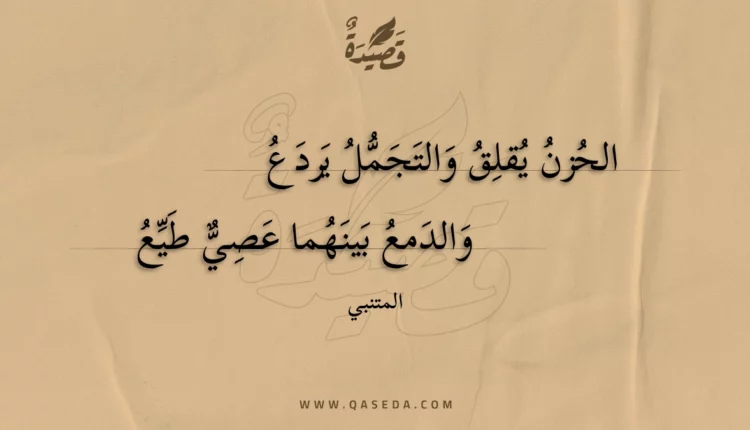 قَصِيدَةٌ
الحُزنُ يُقلِقُ وَالتَجَمُّلُ يَردَعُ
وَالدَمعُ بَينَهُما عَصِيٌّ طَيِّعُ
المتنبي
WWW.QASEDA.COM